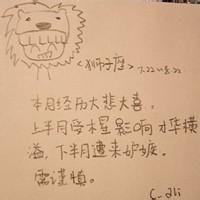 <狮子座> 7.22-8.22
本月经历大悲大喜。
上半月受木星影响才华横
溢，下半月遭来妒嫉。
需谨慎。
C-ali